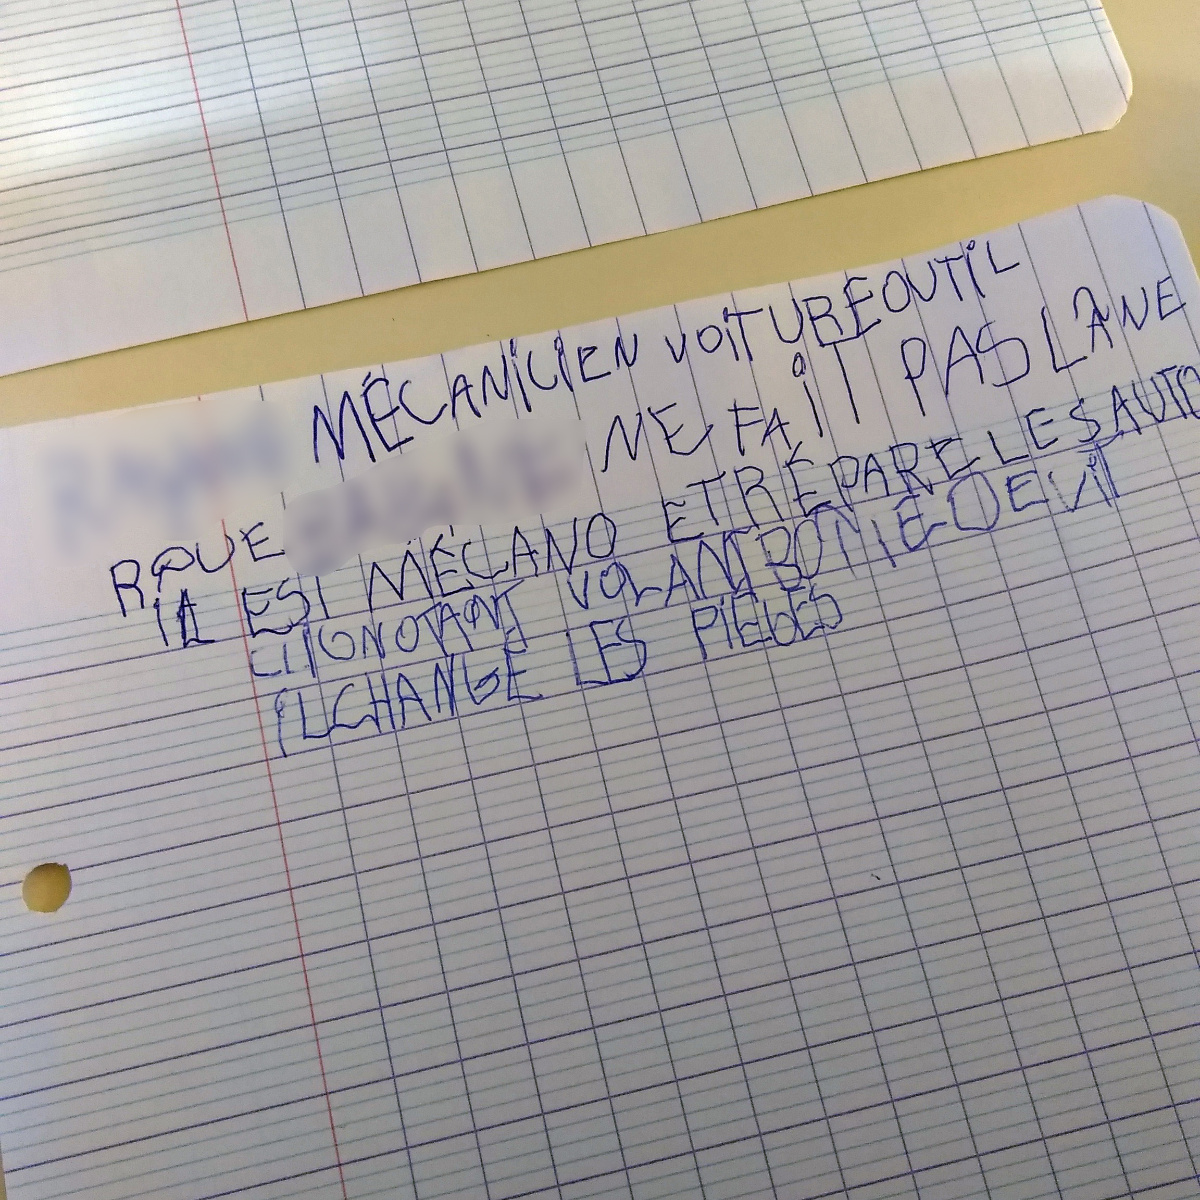 MÉCANICIEN VOITURE OUTIL
ROUE NE FAIT PAS L'ÂNE
IL EST MÉCANO ET RÉPARE LES AUTO
CLIGNOTANT VOLANT
IL CHANGE LES PIÈCES